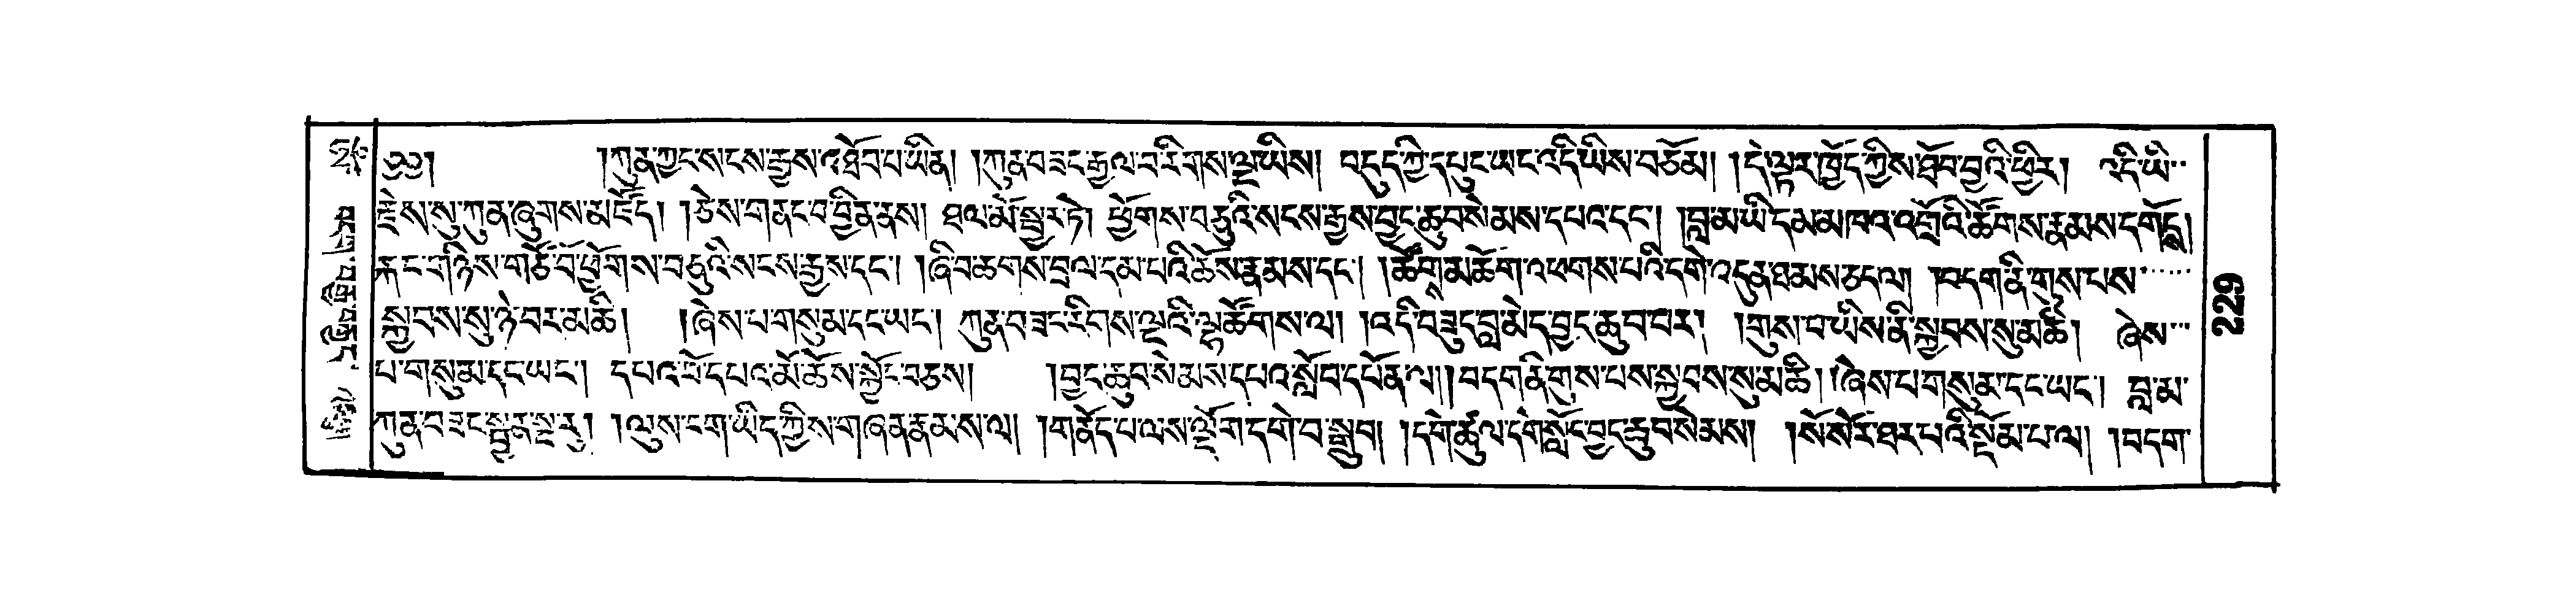 ༄༅། །ཀུན་ཀྱང་སངས་རྒྱས་འཐོབ་པ་ཡིན། །ཀུན་བཟང་རྒྱལ་བ་རིགས་ལྔ་ཡིས། བདུད་ཀྱི་དཔུང་ཡང་འདི་ཡིས་བཅོམ། །དེ་ལྟར་ཁྱོད་ཀྱིས་ཐོབ་བྱའི་ཕྱིར། འདི་ཡི་
རྗེས་སུ་ཀུན་ཞུགས་མཛོད། །ཅེས་གནང་བ་བྱིན་ནས། ཐལ་མོ་སྦྱར་ཏེ། ཕྱོགས་བཅུའི་སངས་རྒྱས་བྱང་ཆུབ་སེམས་དཔའ་དང་། །བླ་མ་ཡི་དམ་མཁའ་འགྲོའི་ཚོགས་རྣམས་དགོངས།
རྐང་གཉིས་གཙོ་བོ་ཕྱོགས་བཅུའི་སངས་རྒྱས་དང་། །ཞི་བ་ཆགས་བྲལ་དམ་པའི་ཆོས་རྣམས་དང་། །ཚོགས་མཆོག་འཕགས་པའི་དགེ་འདུན་ཐམས་ཅད་ལ། །བདག་ནི་གུས་པས་
སྐྱབས་སུ་ཉེ་བར་མཆི། །ཞེས་པ་གསུམ་དང་ཡང་། ཀུན་བཟང་རིགས་ལྔའི་ལྷ་ཚོགས་ལ། །འདི་བཟུང་བླ་མེད་བྱང་ཆུབ་བར། །གུས་པ་ཡིས་ནི་སྐྱབས་སུ་མཆི། ཞེས་
པ་གསུམ་དང་ཡང་། དཔའ་བོ་དཔའ་མོ་ཆོས་སྐྱོང་བཅས། །བྱང་ཆུབ་སེམས་དཔའ་སློབ་དཔོན་ལ། །བདག་ནི་གུས་པས་སྐྱབས་སུ་མཆི། །ཞེས་པ་གསུམ་དང་ཡང་། བླ་མ་
ཀུན་བཟང་སྤྱན་སྔར། །ལུས་ངག་ཡིད་ཀྱིས་གཞན་རྣམས་ལ། །གནོད་པ་ལས་ལྡོག་དགེ་བ་སྒྲུབ། །དགེ་ཚུལ་དགེ་སློང་བྱང་ཆུབ་སེམས། །སོ་སོར་ཐར་པའི་སྡོམ་པ་ལ། །བདག་